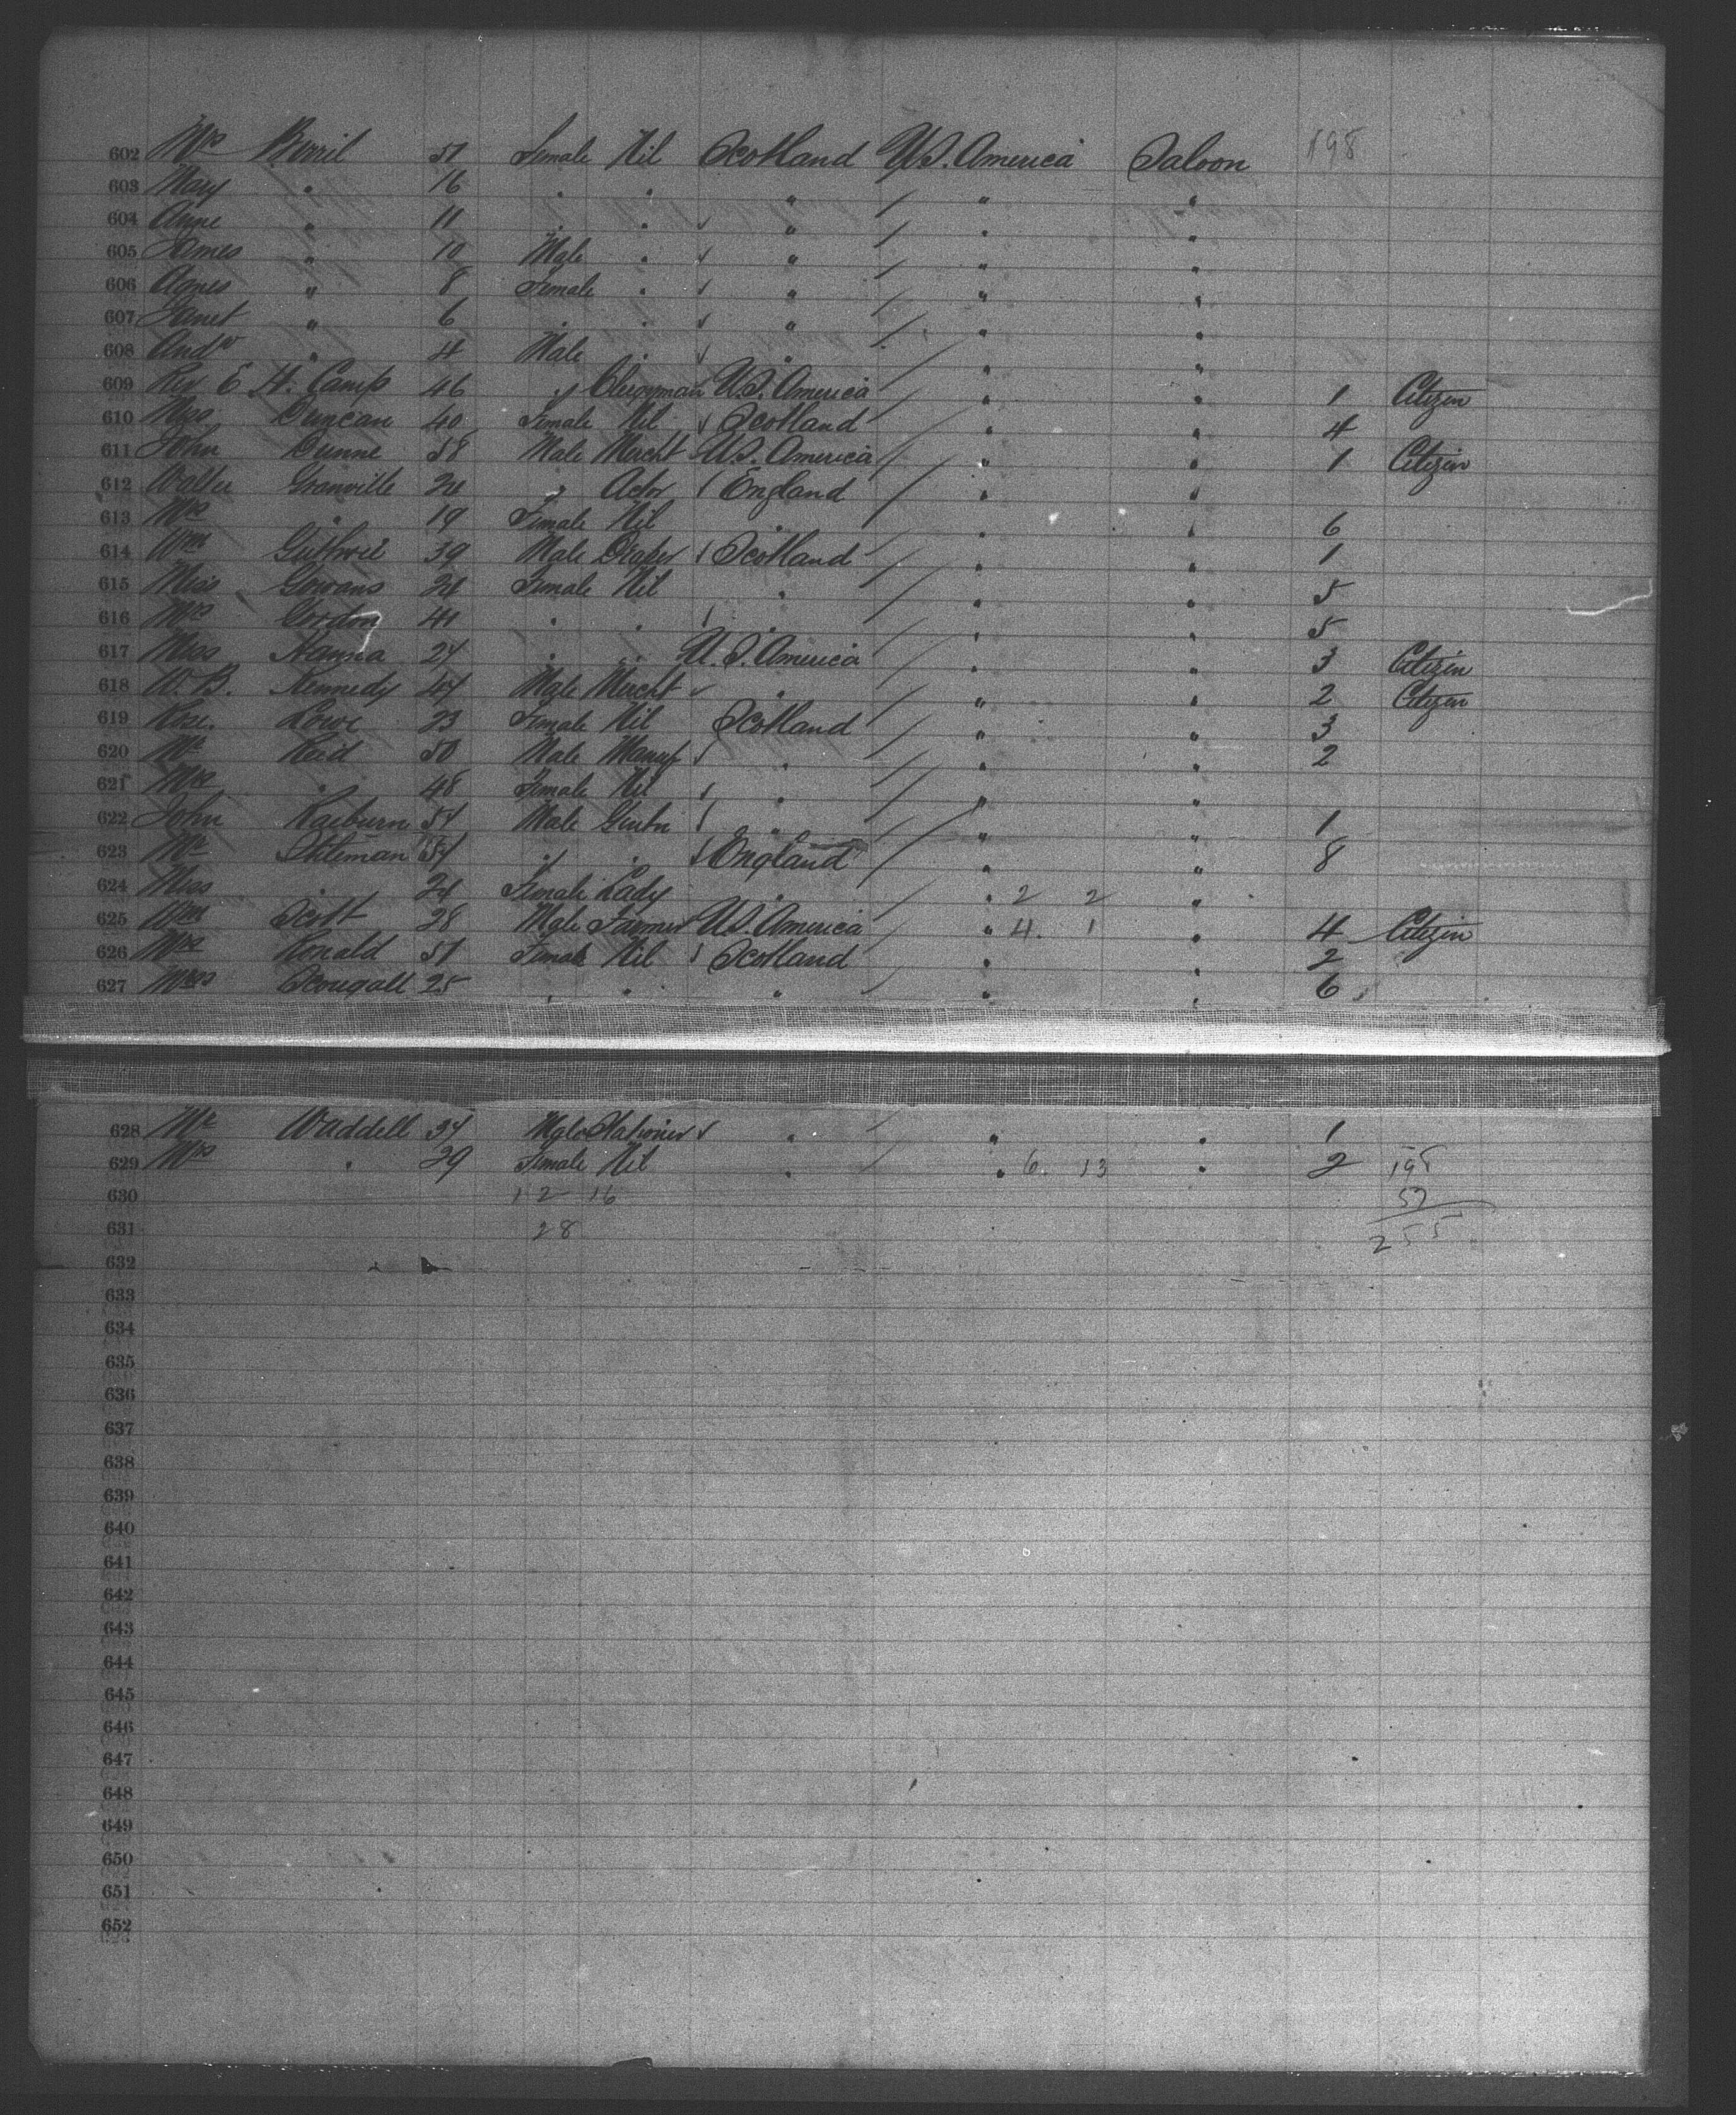 602 Mrs Birril 51 Female Nil Scotland U.S. America Saloon 198
603 May " 16 " " " " "
604 Anne " 11 " " " " "
605 James " 10 Male " " " "
606 Agnes " 8 Female " " " "
607 Janet " 6 " " " " "
608 Andw " 4 Male " " " "
609 Rev. E. H. Camp 46 " Clergyman U.S. America " " 1 Citizen
610 Mrs Duncan 40 Female Nil Scotland " " 4
611 John Dunne 58 Male Mercht U.S. America " " 1 Citizen
612 Walter Granville 24 " Actor England " "
613 Mrs " 19 Female Nil " " 6
614 Wm Guthrie 39 Male Draper Scotland " " 1
615 Miss Gowans 24 Female Nil " " " 5
616 Mrs Gordon 41 " " " " " 5
617 Miss Hanna 27 " " U.S. America " " 3 Citizen
618 W. B. Kennedy 47 Male Mercht " " " 2 Citizen
619 Rose. Lowe 23 Female Nil Scotland " " 3
620 Mr Reid 50 Male Manuf " " " 2
621 Mrs " 48 Female Nil " " "
622 John Raeburn 57 Male Gentn " " " 1
623 Mr 57 " " England " " 8
624 Miss " 24 Female Lady " " 2 2 "
625 Wm Scott 28 Male Farmer U.S. America " 4. 1 " 4 Citizen
626 Mrs Ronald 51 Female Nil Scotland " " 2
627 Miss Dougall 25 " " " " " 6
628 Mr Waddell 37 Male Stationer " " " 1
629 Mrs " 29 Female Nil " " 6. 13 " 2 198
630 12 16 57
631 28 255
632
633
634
635
636
637
638
639
640
641
642
643
644
645
646
647
648
649
650
651
652